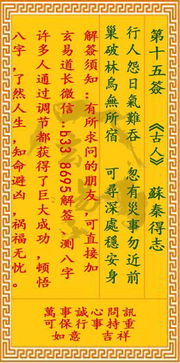 第十五簽 《古人》 蘇秦得志
行人怨日氣難吞 忽有災事勿近前
巢破林烏無所宿 可尋深處穩安身
解簽須知:有所求問的朋友,可直加
玄易道长微信:b33 8695解簽:測八字
许多人通过调节都获得了巨大成功,顿悟
八字,了然人生,知命避凶,祸福无忧。
萬事誠心問訊
可保行事持重
如意吉祥